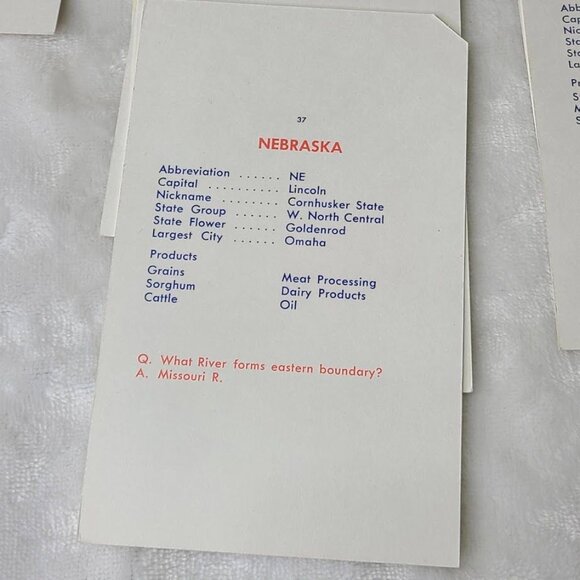 37
NEBRASKA
Abbreviation ...... NE
Capital .......... Lincoln
Nickname ........ Cornhusker State
State Group ...... W. North Central
State Flower ...... Goldenrod
Largest City ...... Omaha
Products
Grains Meat Processing
Sorghum Dairy Products
Cattle Oil
Q. What River forms eastern boundary?
A. Missouri R.